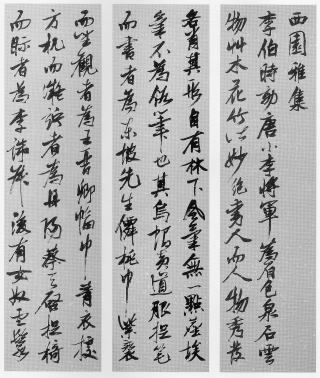 西園雅集
李伯時効唐小李將軍為著色泉石雲
物艸木花竹皆妙絕動人而人物秀發
各肖其形自有林下風氣無一點塵埃
氣不為凡筆也其烏帽黃道服捉笔
而書者為東坡先生僊桃巾紫裘
而坐觀者為王晉卿幅巾青衣據
方机而凝竚者為丹陽蔡天啓捉椅
而眎者為李端叔後有女奴雲鬟